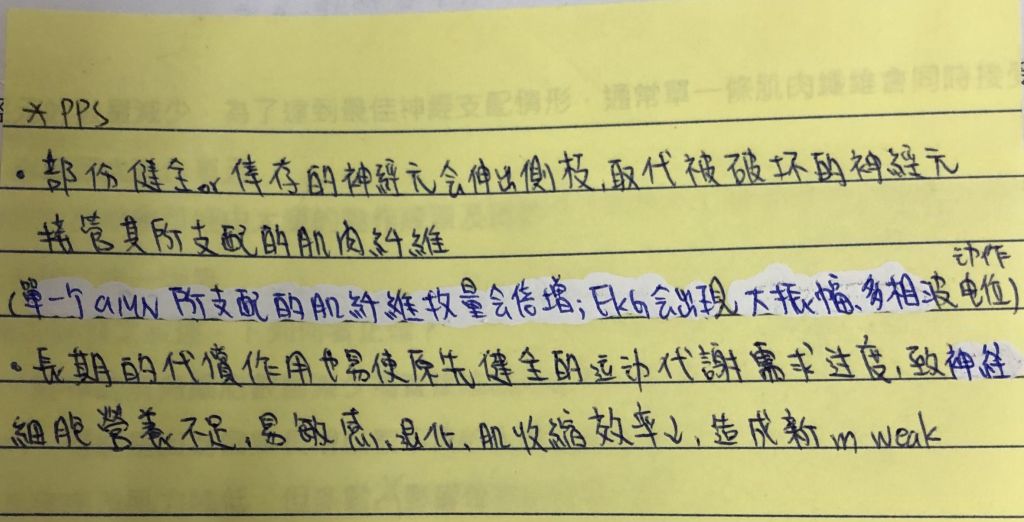 * PPS
• 部份健全or倖存的神經元会伸出側枝,取代被破坏的神經元
接管其所支配的肌肉纤維
动作
(單一个αMN所支配的肌纤維数量会倍增;EKG会出現大振幅、多相波电位)
• 長期的代償作用也易使原先健全的运动代謝需求过度,致神経
細胞營養不足,易敏感、退化、肌收縮效率↓,造成新m weak